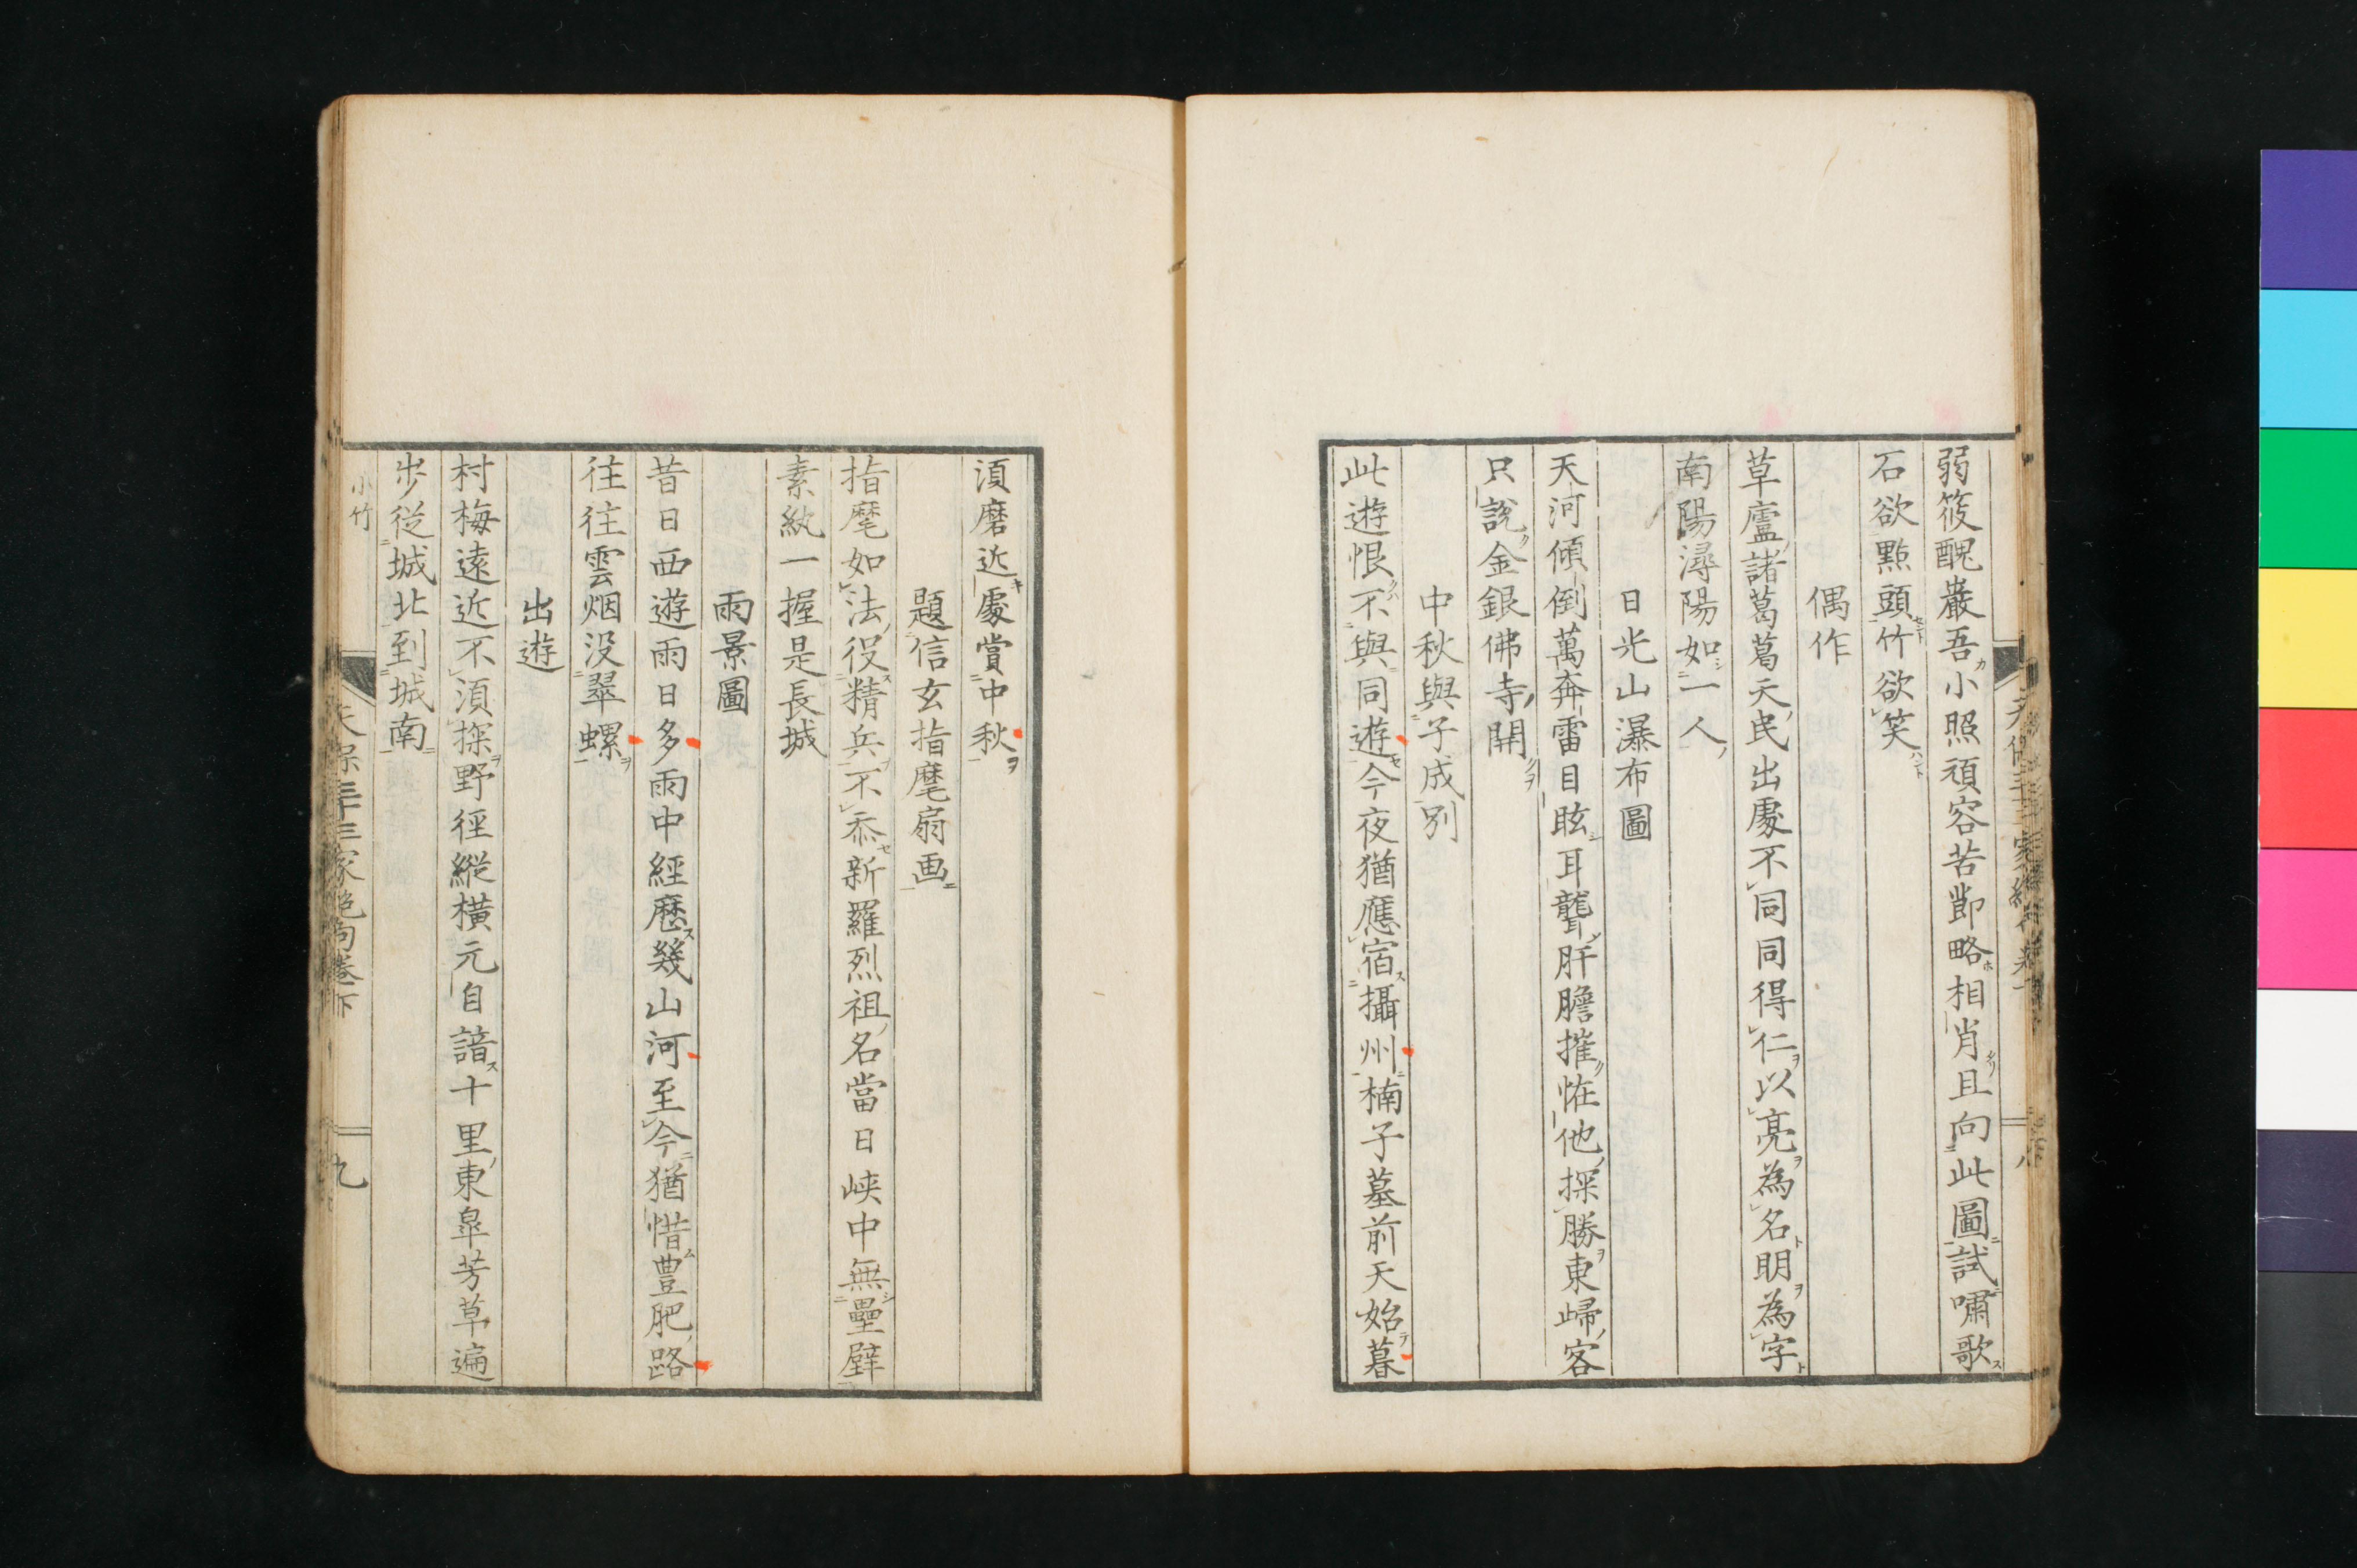 弱筱醜巖吾小照頑容苦節略相肖且向此圖試嘯歌
石欲點頭竹欲笑
偶作
草廬諸葛葛天民出處不同同得仁以亮為名明為字
南陽潯陽如一人
日光山瀑布圖
天河傾倒萬奔雷目眩耳聾肝膽摧恠他探勝東歸客
只說金銀佛寺開
中秋與子成別
此遊恨不與同遊今夜猶應宿攝州楠子墓前天始暮
須磨近處賞中秋
題信玄指麾扇画
指麾如法役精兵不忝新羅烈祖名當日峽中無壘壁
素紈一握是長城
雨景圖
昔日西遊雨日多雨中經歷幾山河至今猶惜豊肥路
往往雲烟没翠螺
出遊
村梅遠近不須探野徑縱橫元自諳十里東皐芳草遍
步從城北到城南
小竹
天保三十三家絶句卷下
九